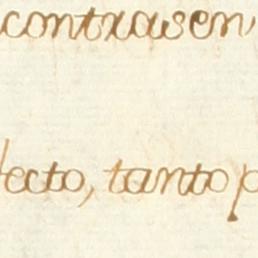 contrasen
lecto, tanto p